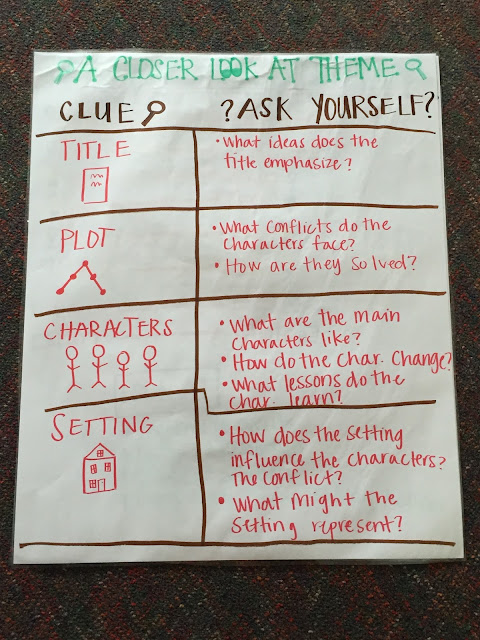 A CLOSER LOOK AT THEME
CLUE
?ASK YOURSELF?
TITLE
• What ideas does the
title emphasize?
PLOT
• What conflicts do the
characters face?
• How are they solved?
CHARACTERS
• What are the main
characters like?
• How do the char. change?
• What lessons do the
char. learn?
SETTING
• How does the setting
influence the characters?
The conflict?
• What might the
setting represent?